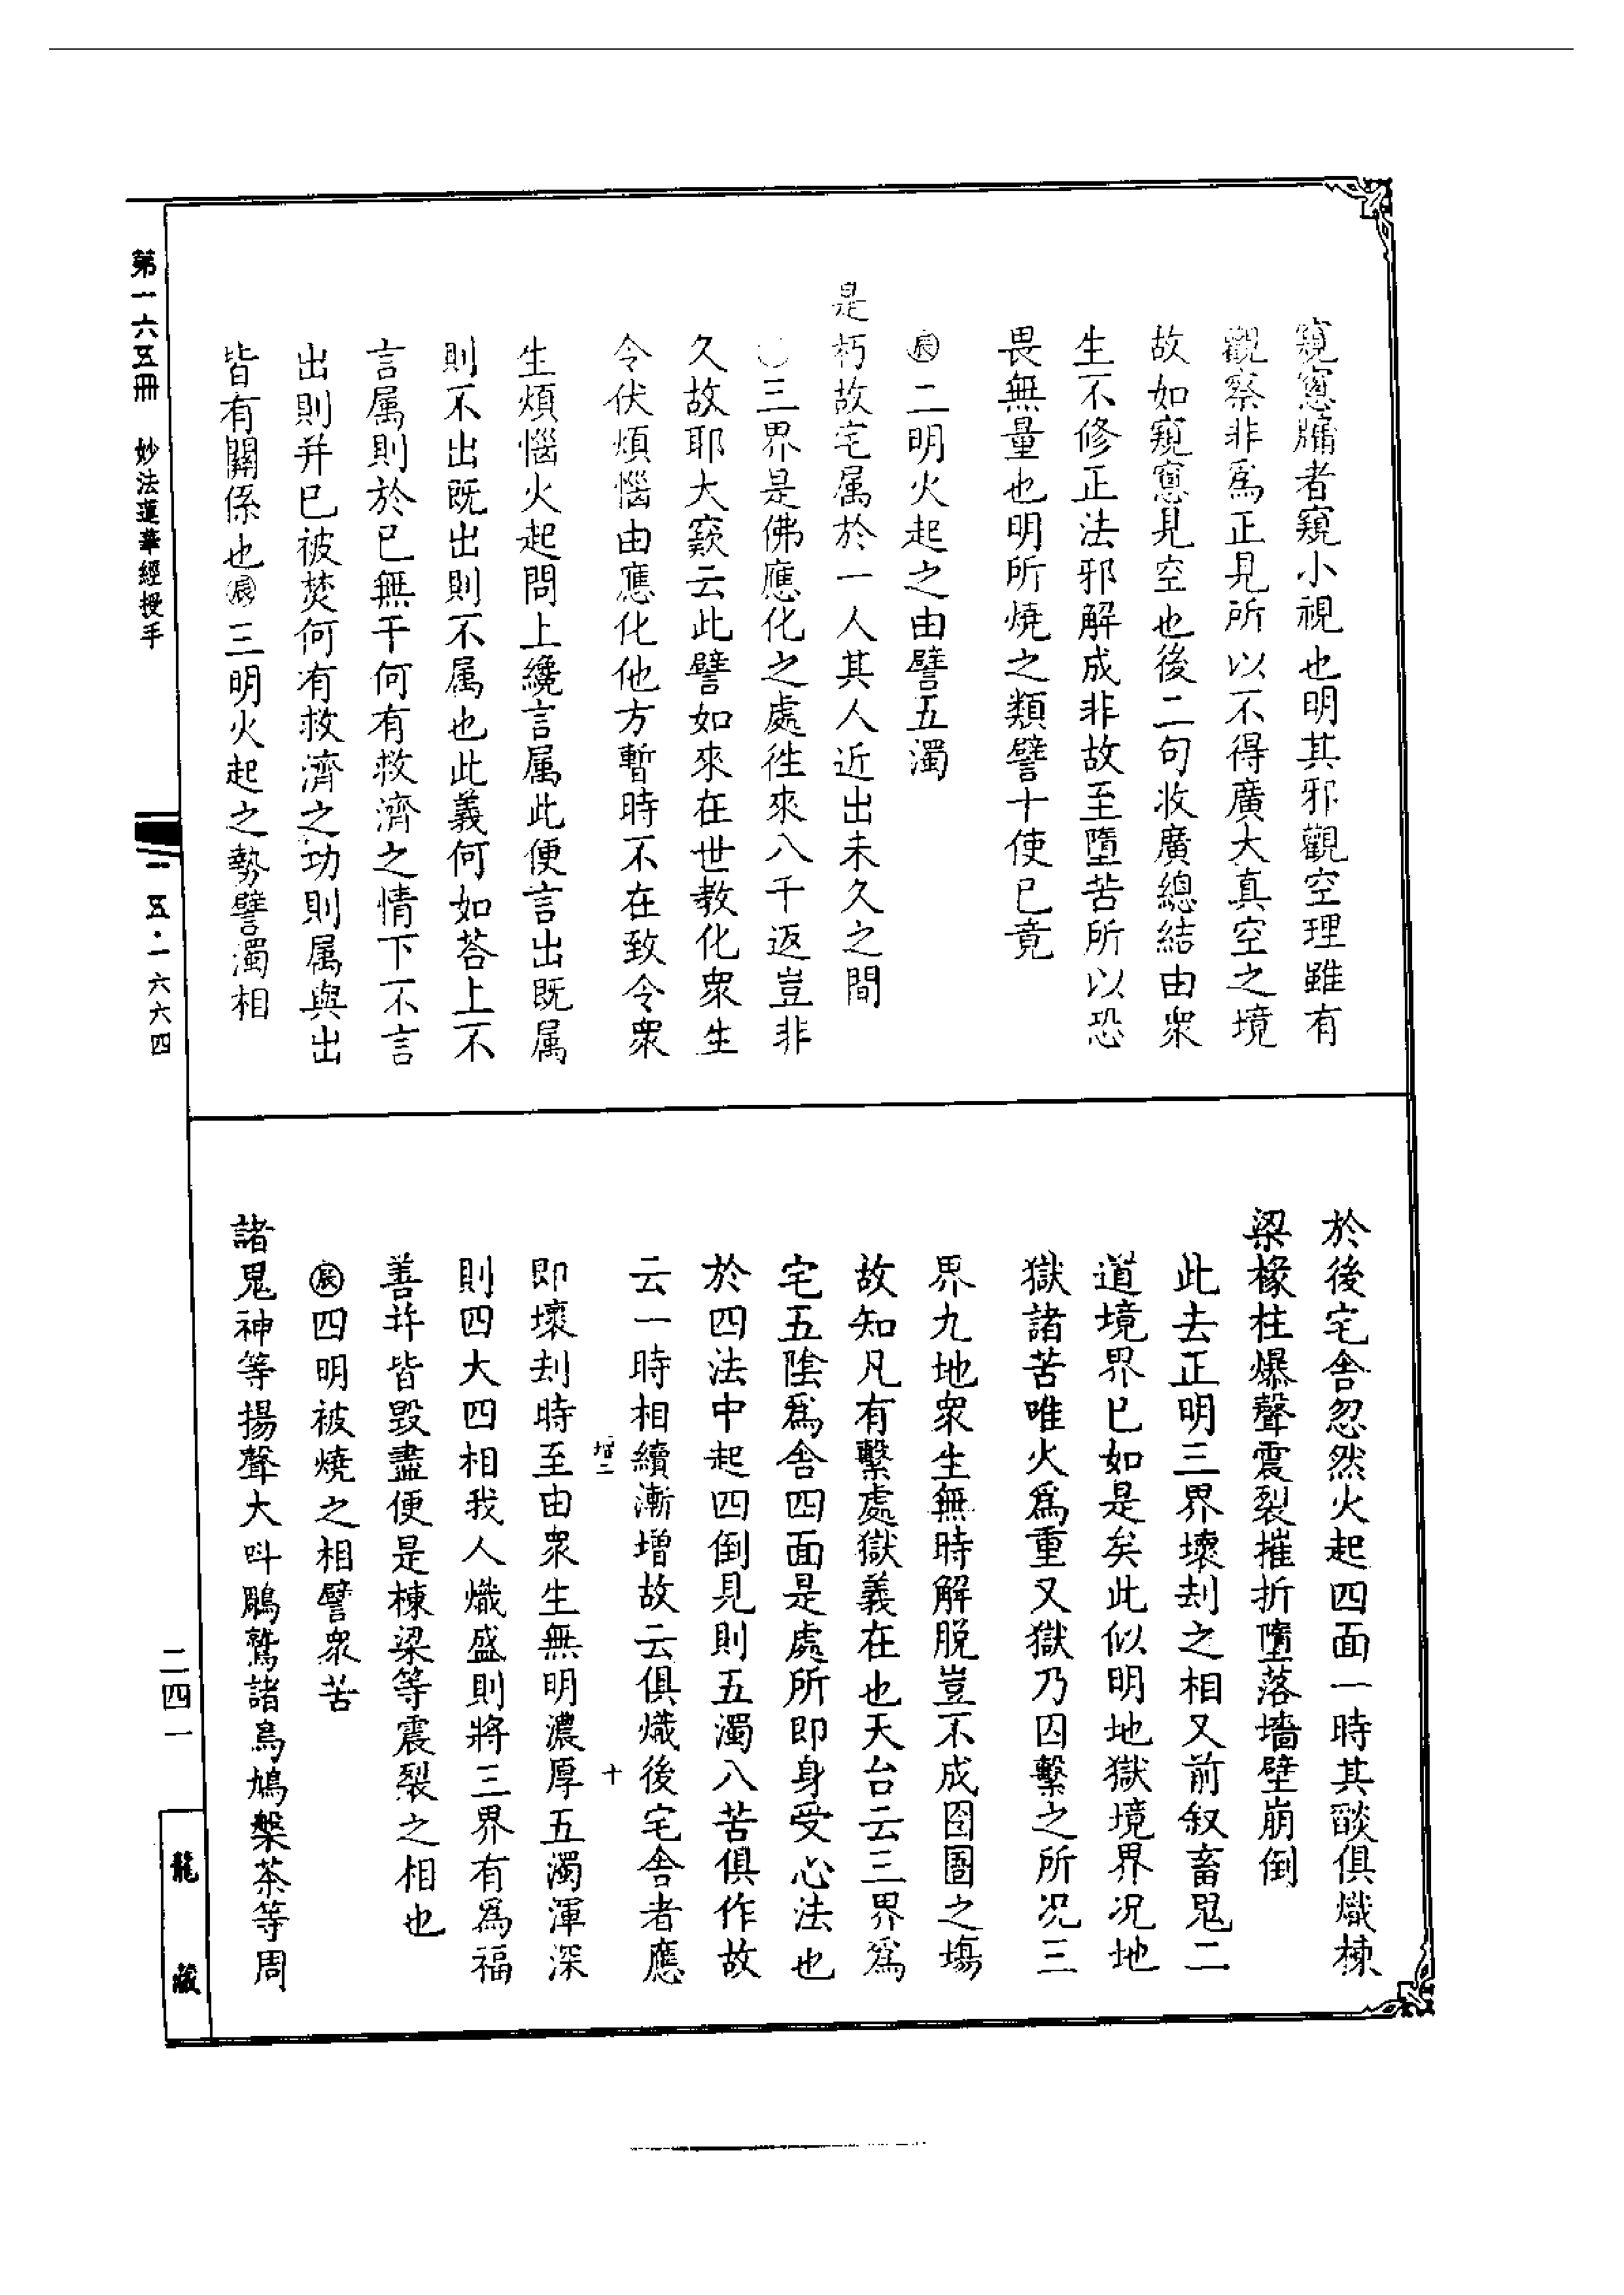 窺窻牖者窺小視也明其邪觀空理雖有
觀察非爲正見所以不得廣大真空之境
故如窺窻見空也後二句收廣總結由衆
生不修正法邪解成非故至墮苦所以恐
畏無量也明所燒之類譬十使已竟
㊁二明火起之由譬五濁
是朽故宅属於一人其人近出未久之間
○三界是佛應化之處徃來八千返豈非
久故耶大窾云此譬如來在世教化衆生
令伏煩惱由應化他方暫時不在致令衆
生煩惱火起問上纔言属此便言出既属
則不出既出則不属也此義何如荅上不
言属則於已無干何有救濟之情下不言
出則并已被焚何有救濟之功則属與出
皆有關係也辰三明火起之勢譬濁相
於後宅舍忽然火起四面一時其燄俱熾棟
梁椽柱爆聲震裂摧折墮落墻壁崩倒
此去正明三界壞刦之相又前叙畜鬼二
道境界已如是矣此似明地獄境界况地
獄諸苦唯火爲重又獄乃囚繫之所况三
界九地衆生無時解脱豈不成囹圄之塲
故知凡有繫處獄義在也天台云三界爲
宅五陰爲舍四面是處所即身受心法也
於四法中起四倒見則五濁八苦俱作故
云一時相續漸增故云俱熾後宅舍者應
十
即壞刦時至由衆生無明濃厚五濁渾深
則四大四相我人熾盛則將三界有爲福
善并皆毁盡便是棟梁等震裂之相也
辰四明被燒之相譬衆苦
諸鬼神等揚聲大呌鵰鷲諸鳥鳩槃茶等周
第一六五冊　妙法蓮華經授手
一五·一六六四
二四一
龍藏